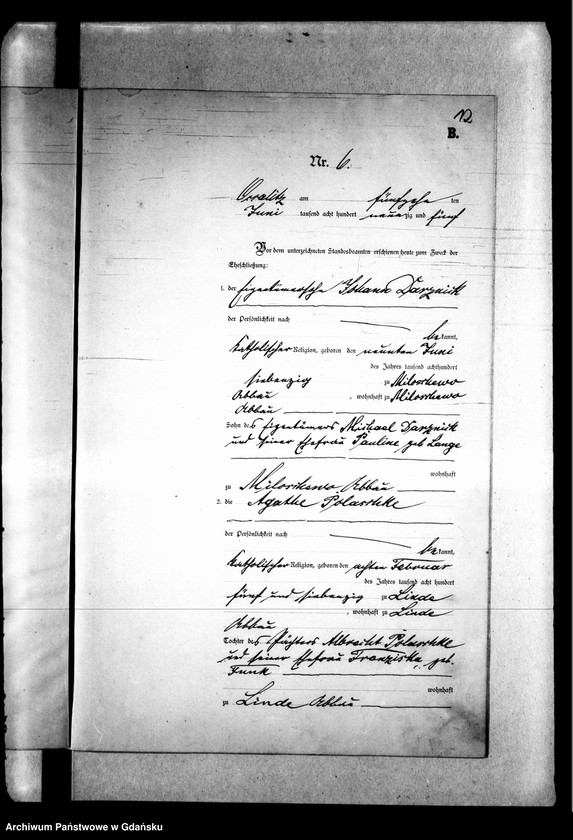 12
B.
Nr. 6.
am fünfzehn ten
Juni tausend acht hundert neunzig und fünf
Vor dem unterzeichneten Standesbeamten erschienen heute zum Zweck der
Eheschließung:
1. der Eigentümersohn Johann Darznick
der Persönlichkeit nach
bekannt,
katholischer Religion, geboren den neunten Juni
des Jahres tausend achthundert
siebenzig zu Miloschewo
Abbau , wohnhaft zu Miloschewo
Abbau
Sohn des Eigentümers Michael Darznick
und seiner Ehefrau Pauline geb Lange
wohnhaft
zu Miloschewo Abbau
2. die Agathe Polaschke
der Persönlichkeit nach
bekannt,
katholischer Religion, geboren den achten Februar
des Jahres tausend acht hundert
fünf und siebenzig zu Linde
, wohnhaft zu Linde
Abbau
Tochter des Pächters Albrecht Polaschke
und seiner Ehefrau Franziska, geb.
Funk
wohnhaft
zu Linde Abbau
Archiwum Państwowe w Gdańsku